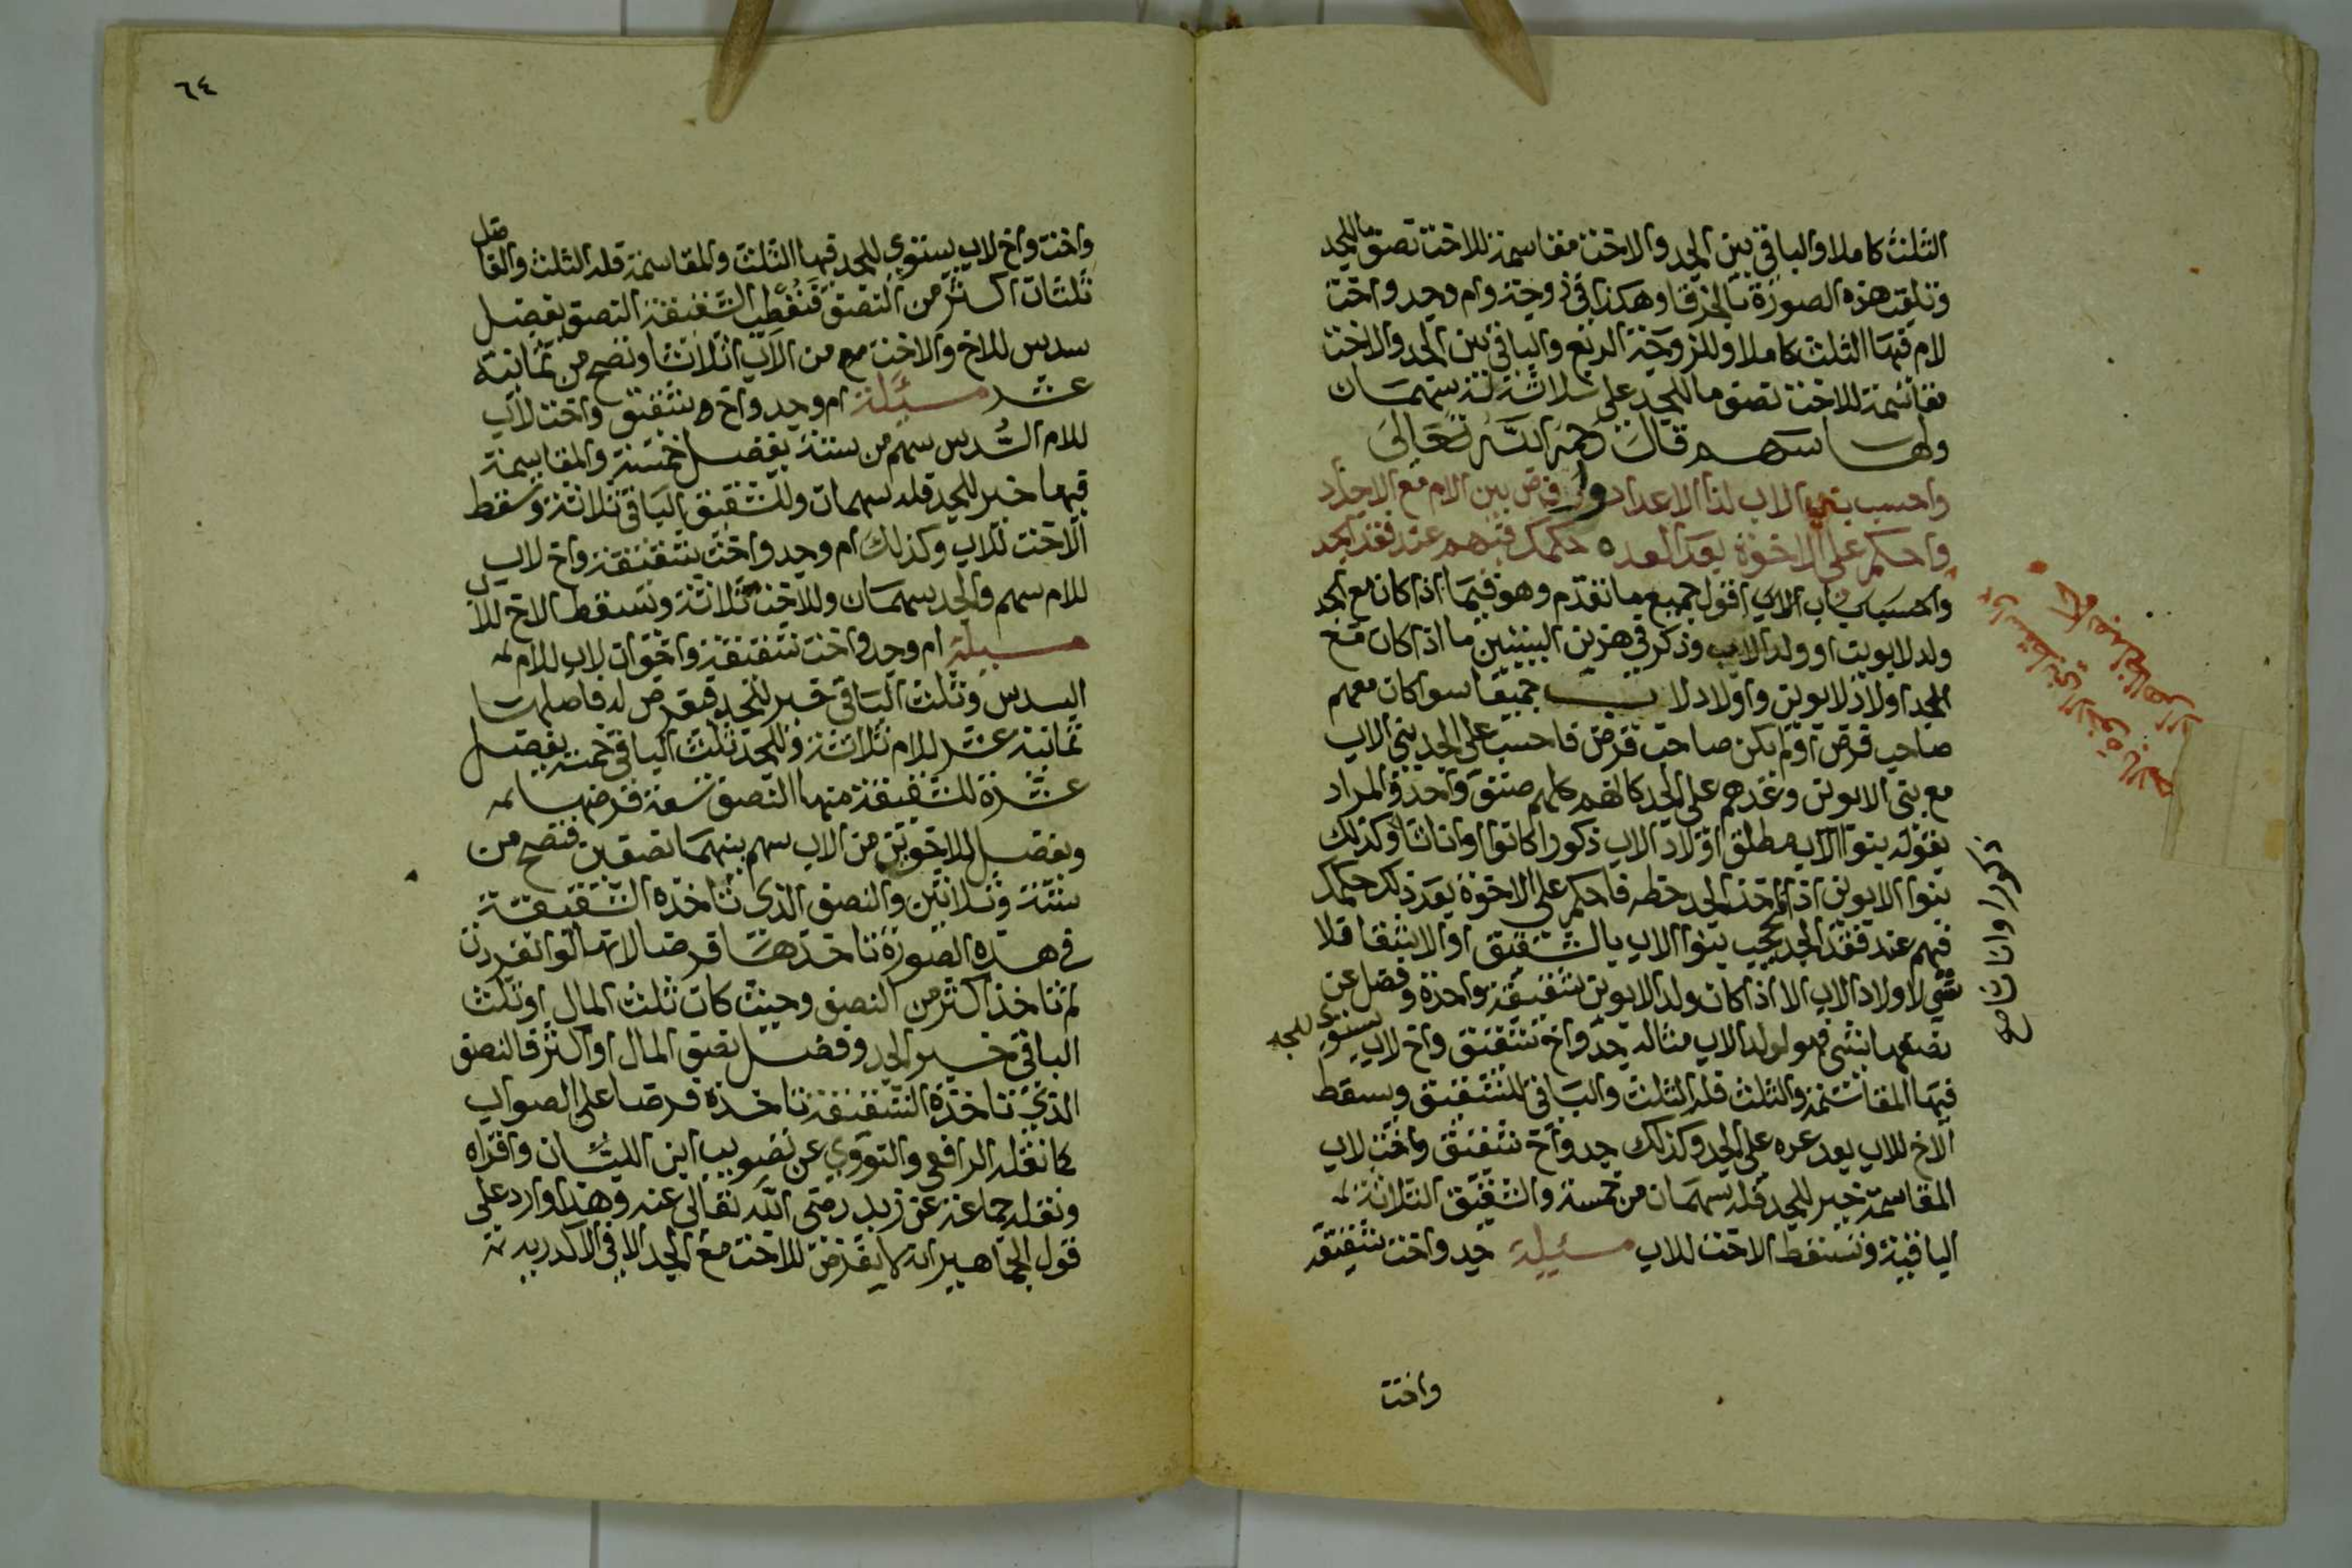 الثلث كاملا والباقي بين الجد والاخت مقاسمة للاخت نصف ما للجد
وتلقب هذه الصورة بالخرقا وهكذا في زوجة وام وجد واخت
للام فيها الثلث كاملا وللزوجة الربع والباقي بين الجد والاخت
مقاسمة للاخت نصف ما للجد على ثلاثة له سهمان
ولها سهم قال رحمه الله تعالى
واحسب بني الاب لذا الاعداد وارفض بني الام مع الاجداد
واحكم على الاخوة بعد العد حكمك فيهم عند فقد الجد
اقول جميع ما تقدم وهو فيما اذا كان مع الجد
ولد لابوين او ولد الاب وذكر في هذين البيتين ما اذا كان مع
الجد اولاد لابوين واولاد لاب جميعا سوا كان معهم
صاحب فرض او لم يكن صاحب فرض فاحسب على الجد بني الاب
مع بني الابوين وعدهم على الجد كانهم كلهم صنف واحد والمراد
بقوله بنوا الاب مطلق اولاد الاب ذكورا كانوا او اناثا وكذلك
بنوا الابوين اذا اخذ الجد حظه فاحكم على الاخوة بعد ذلك حكمك
فيهم عند فقد الجد بحجب بنوا الاب بالشقيق او الاشقا فلا
شي لاولاد الاب الا اذا كان ولد الابوين شقيقة واحدة وفضل عن
نصفها شي فهو لولد الاب مثاله جد واخ شقيق واخ لاب يستوي للجد
فيها المقاسمة والثلث فله الثلث والباقي للشقيق ويسقط
الاخ للاب بعد عده على الجد وكذلك جد واخ شقيق واخت لاب
المقاسمة خير للجد فله سهمان من خمسة والشقيق الثلاثة
الباقية وتسقط الاخت للاب مسئلة جد واخت شقيقة
ذكورا واناثا صح
واخت
٦٤
واخت واخ لاب يستوي للجد فيها الثلث والمقاسمة فله الثلث والفاضل
ثلثان اكثر من النصف فتعطي الشقيقة النصف يفضل
سدس للاخ والاخت من الاب اثلاثا وتصح من ثمانية
عشر مسئلة ام وجد واخ شقيق واخت لاب
للام السدس سهم من ستة يفضل خمسة والمقاسمة
فيها خير للجد فله سهمان وللشقيق الباقي ثلاثة وسقط
الاخت للاب وكذلك ام وجد واخت شقيقة واخ لاب
للام سهم والجد سهمان وللاخت ثلاثة ويسقط الاخ للاب
مسئلة ام وجد واخت شقيقة واخوان لاب للام
السدس وثلث الباقي خير للجد فيفرض له فاصلها
ثمانية عشر للام ثلاثة وللجد ثلث الباقي خمسة يفضل
عشرة للشقيقة منها النصف تسعة فرضها
ويفضل للاخوين من الاب سهم بينهما نصفين فتصح من
ستة وثلاثين والنصف الذي تاخذه الشقيقة
في هذه الصورة تاخذها فرضا لانها لو انفردت
لم تاخذ اكثر من النصف وحيث كان ثلث المال او ثلث
الباقي خير الجد وفضل نصف المال او اكثر فالنصف
الذي تاخذه الشقيقة تاخذه فرضا على الصواب
كما نقله الرافعي والنووي عن تصويب ابن اللبان واقراه
ونقله جماعة عن زيد رضي الله تعالى عنه وهذا وارد على
قول الجماهير انه لا يفرض للاخت مع الجد الا في الاكدرية